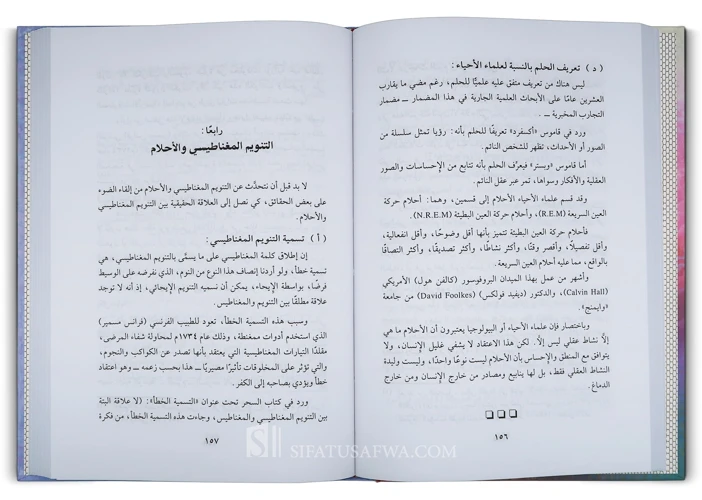 ( د ) تعريف الحلم بالنسبة لعلماء الأحياء :
ليس هناك من تعريف متفق عليه علميًّا للحلم، رغم مضي ما يقارب
العشرين عامًا على الأبحاث العلمية الجارية في هذا المضمار ــ مضمار
التجارب المخبرية ــ .
ورد في قاموس «أكسفرد» تعريفًا للحلم بأنه: رؤيا تمثل سلسلة من
الصور أو الأحداث، تظهر للشخص النائم.
أما قاموس «وبستر» فيعرِّف الحلم بأنه تتابع من الإحساسات والصور
العقلية والأفكار وسواها، تمر عبر عقل النائم.
وقد قسم علماء الأحياء الأحلام إلى قسمين، وهما: أحلام حركة
العين السريعة (R.E.M)، وأحلام حركة العين البطيئة (N.R.E.M).
فأحلام حركة العين البطيئة تتميز بأنها أقل وضوحًا، وأقل انفعالية،
وأقل تفصيلًا، وأقصر وقتًا، وأكثر نشاطًا، وأكثر تصديقًا، وأكثر التصاقًا
بالواقع، مما عليه أحلام العين السريعة.
وأشهر من عمل بهذا الميدان البروفوسور (كالفن هول) الأمريكي
(Calvin Hall)، والدكتور (ديفيد فولكس) (David Foolkes) من جامعة
«وايمنج».
وباختصار فإن علماء الأحياء أو البيولوجيا يعتبرون أن الأحلام ما هي
إلَّا نشاط عقلي ليس إلَّا. لكن هذا الاعتقاد لا يشفي غليل الإنسان، ولا
يتوافق مع المنطق والإحساس بأن الأحلام ليست نوعًا واحدًا، وليست وليدة
النشاط العقلي فقط، بل لها ينابيع ومصادر من خارج الإنسان ومن خارج
الدماغ.
١٥٦
رابعًا :
التنويم المغناطيسي والأحلام
لا بد قبل أن نتحدَّث عن التنويم المغناطيسي والأحلام من إلقاء الضوء
على بعض الحقائق، كي نصل إلى العلاقة الحقيقية بين التنويم المغناطيسي
والأحلام.
( أ ) تسمية التنويم المغناطيسي :
إن إطلاق كلمة المغناطيسي على ما يسمَّى بالتنويم المغناطيسي، هي
تسمية خطأ، ولو أردنا إنصاف هذا النوع من النوم، الذي نفرضه على الوسيط
فرضًا، بواسطة الإيحاء، يمكن أن نسميه التنويم الإيحائي، إذ أنه لا توجد
علاقة مطلقًا بين التنويم والمغناطيس.
وسبب هذه التسمية الخطأ، تعود للطبيب الفرنسي (فرانس مسمير)
الذي استخدم أدوات ممغنطة، وذلك عام ١٧٣٤م لمحاولة شفاء المرضى،
مقلدًا التيارات المغناطيسية التي يعتقد بأنها تصدر عن الكواكب والنجوم،
والتي تؤثر على المخلوقات تأثيرًا مصيريًّا ــ هذا بحسب زعمه ــ وهو اعتقاد
خطأ ويؤدي بصاحبه إلى الكفر.
ورد في كتاب السحر تحت عنوان «التسمية الخطأ»: (لا علاقة البتة
بين التنويم المغناطيسي والمغناطيس، وجاءت هذه التسمية الخطأ، من فكرة
١٥٧
SIFATUSAFWA.COM